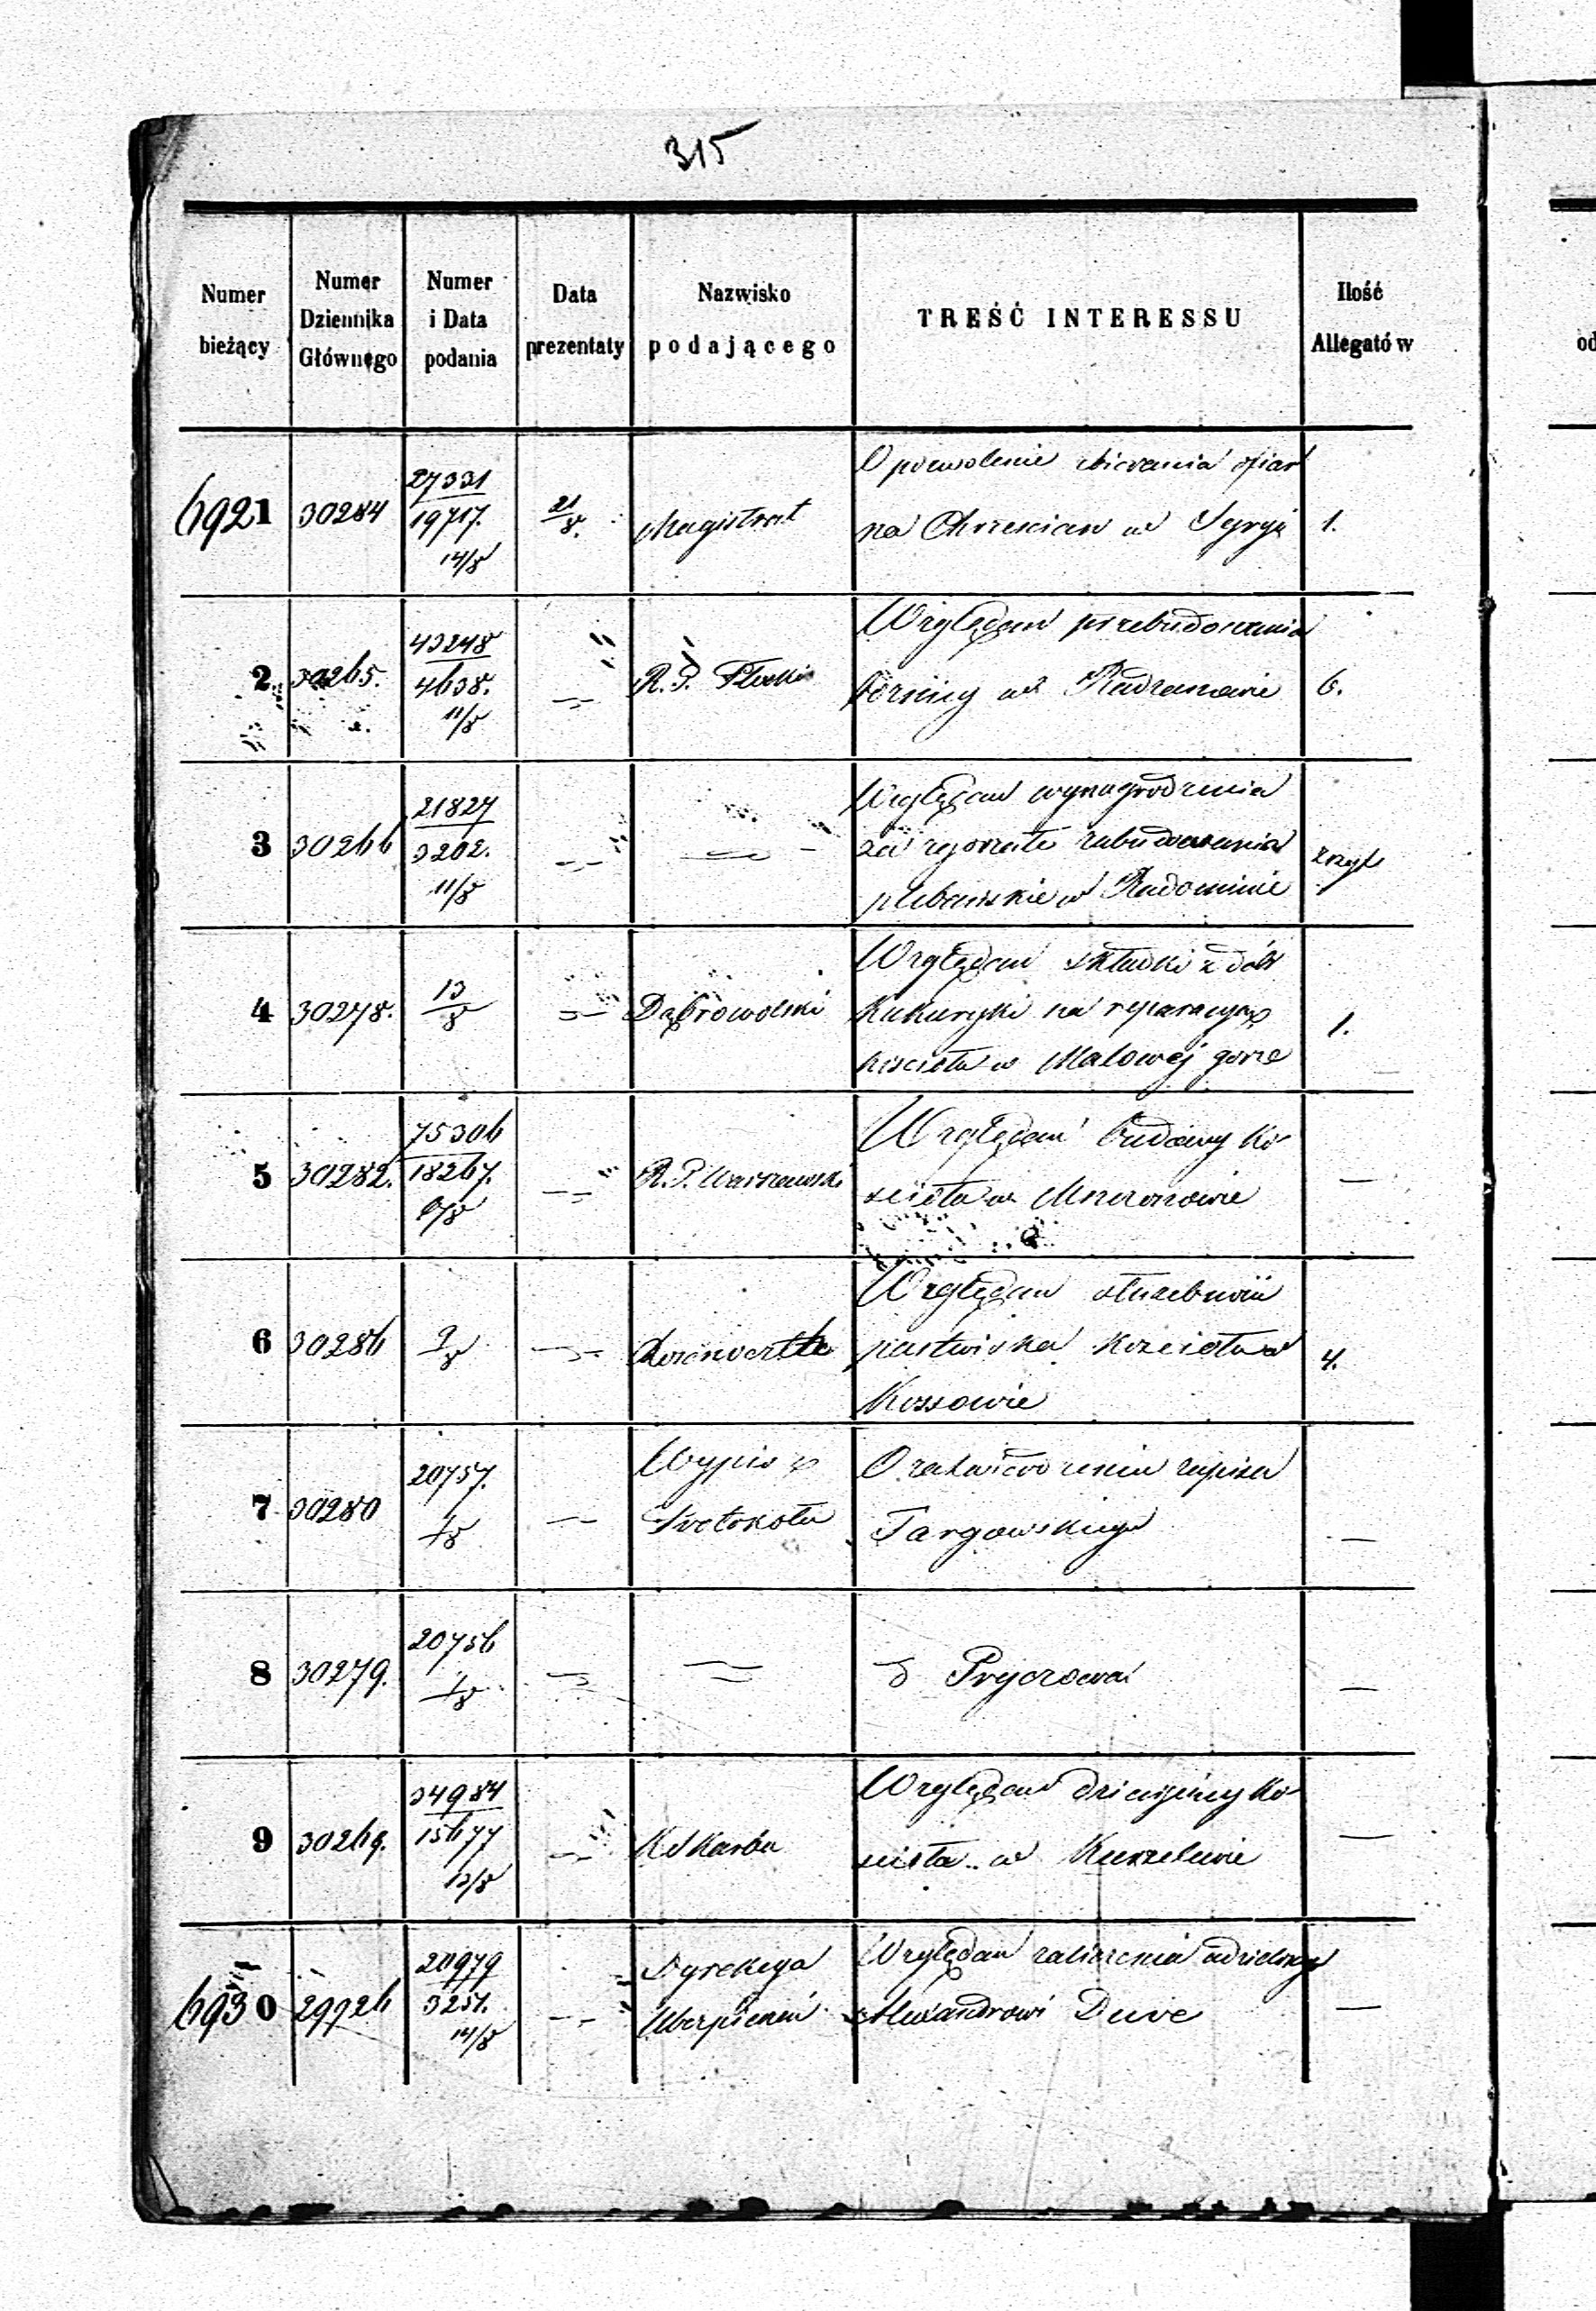 315
Numer bieżący
Numer Dziennika Głównego
Numer i Data podania
Data prezentaty
Nazwisko podającego
TREŚĆ INTERESSU
Ilość Allegatów
od
6921 30284 27331 / 19717. 14/8 21/8. Magistrat
O pozwolenie zbierania ofiar
na Chrzescian w Syryi 1.
2 30265. 43248 / 4638. 11/8 — R. G. Płocki
Względem przebudowania
bożnicy w Radzanowie 6.
3 30266 21827 / 3202. 11/8 — —
Względem wynagrodzenia
za zgorzałe zabudowania
plebańskie w Radominie
4 30278. 13/8 — Dąbrowolski
Względem składki z dóbr
Kukuryki na reparacyą
kościoła w Malowej gorze 1.
5 30282. 75306 / 18267. — R. G. Warszawski
Względem budowy Ko-
scioła w Mszczonowie —
6 30286 9/8 —
Względem
pastwiska Kościoła w
Kossowie 4.
7 30280 20757. 1/8 — Wypis z
Protokołu
O zatwierdzeniu zapisu
Targowskiego —
8 30279. 20756 1/8 — —
d Pryczowa —
9 30269. 34984 / 15677 13/8 — K Skarbu
Względem dziesięciny Ko-
scioła w Kurzelowie —
6930 29926 20979 / 3251. 14/8 — Dyrekcya
Ubezpieczeń
Względem zaliczenia
Alexandrowi Duve —